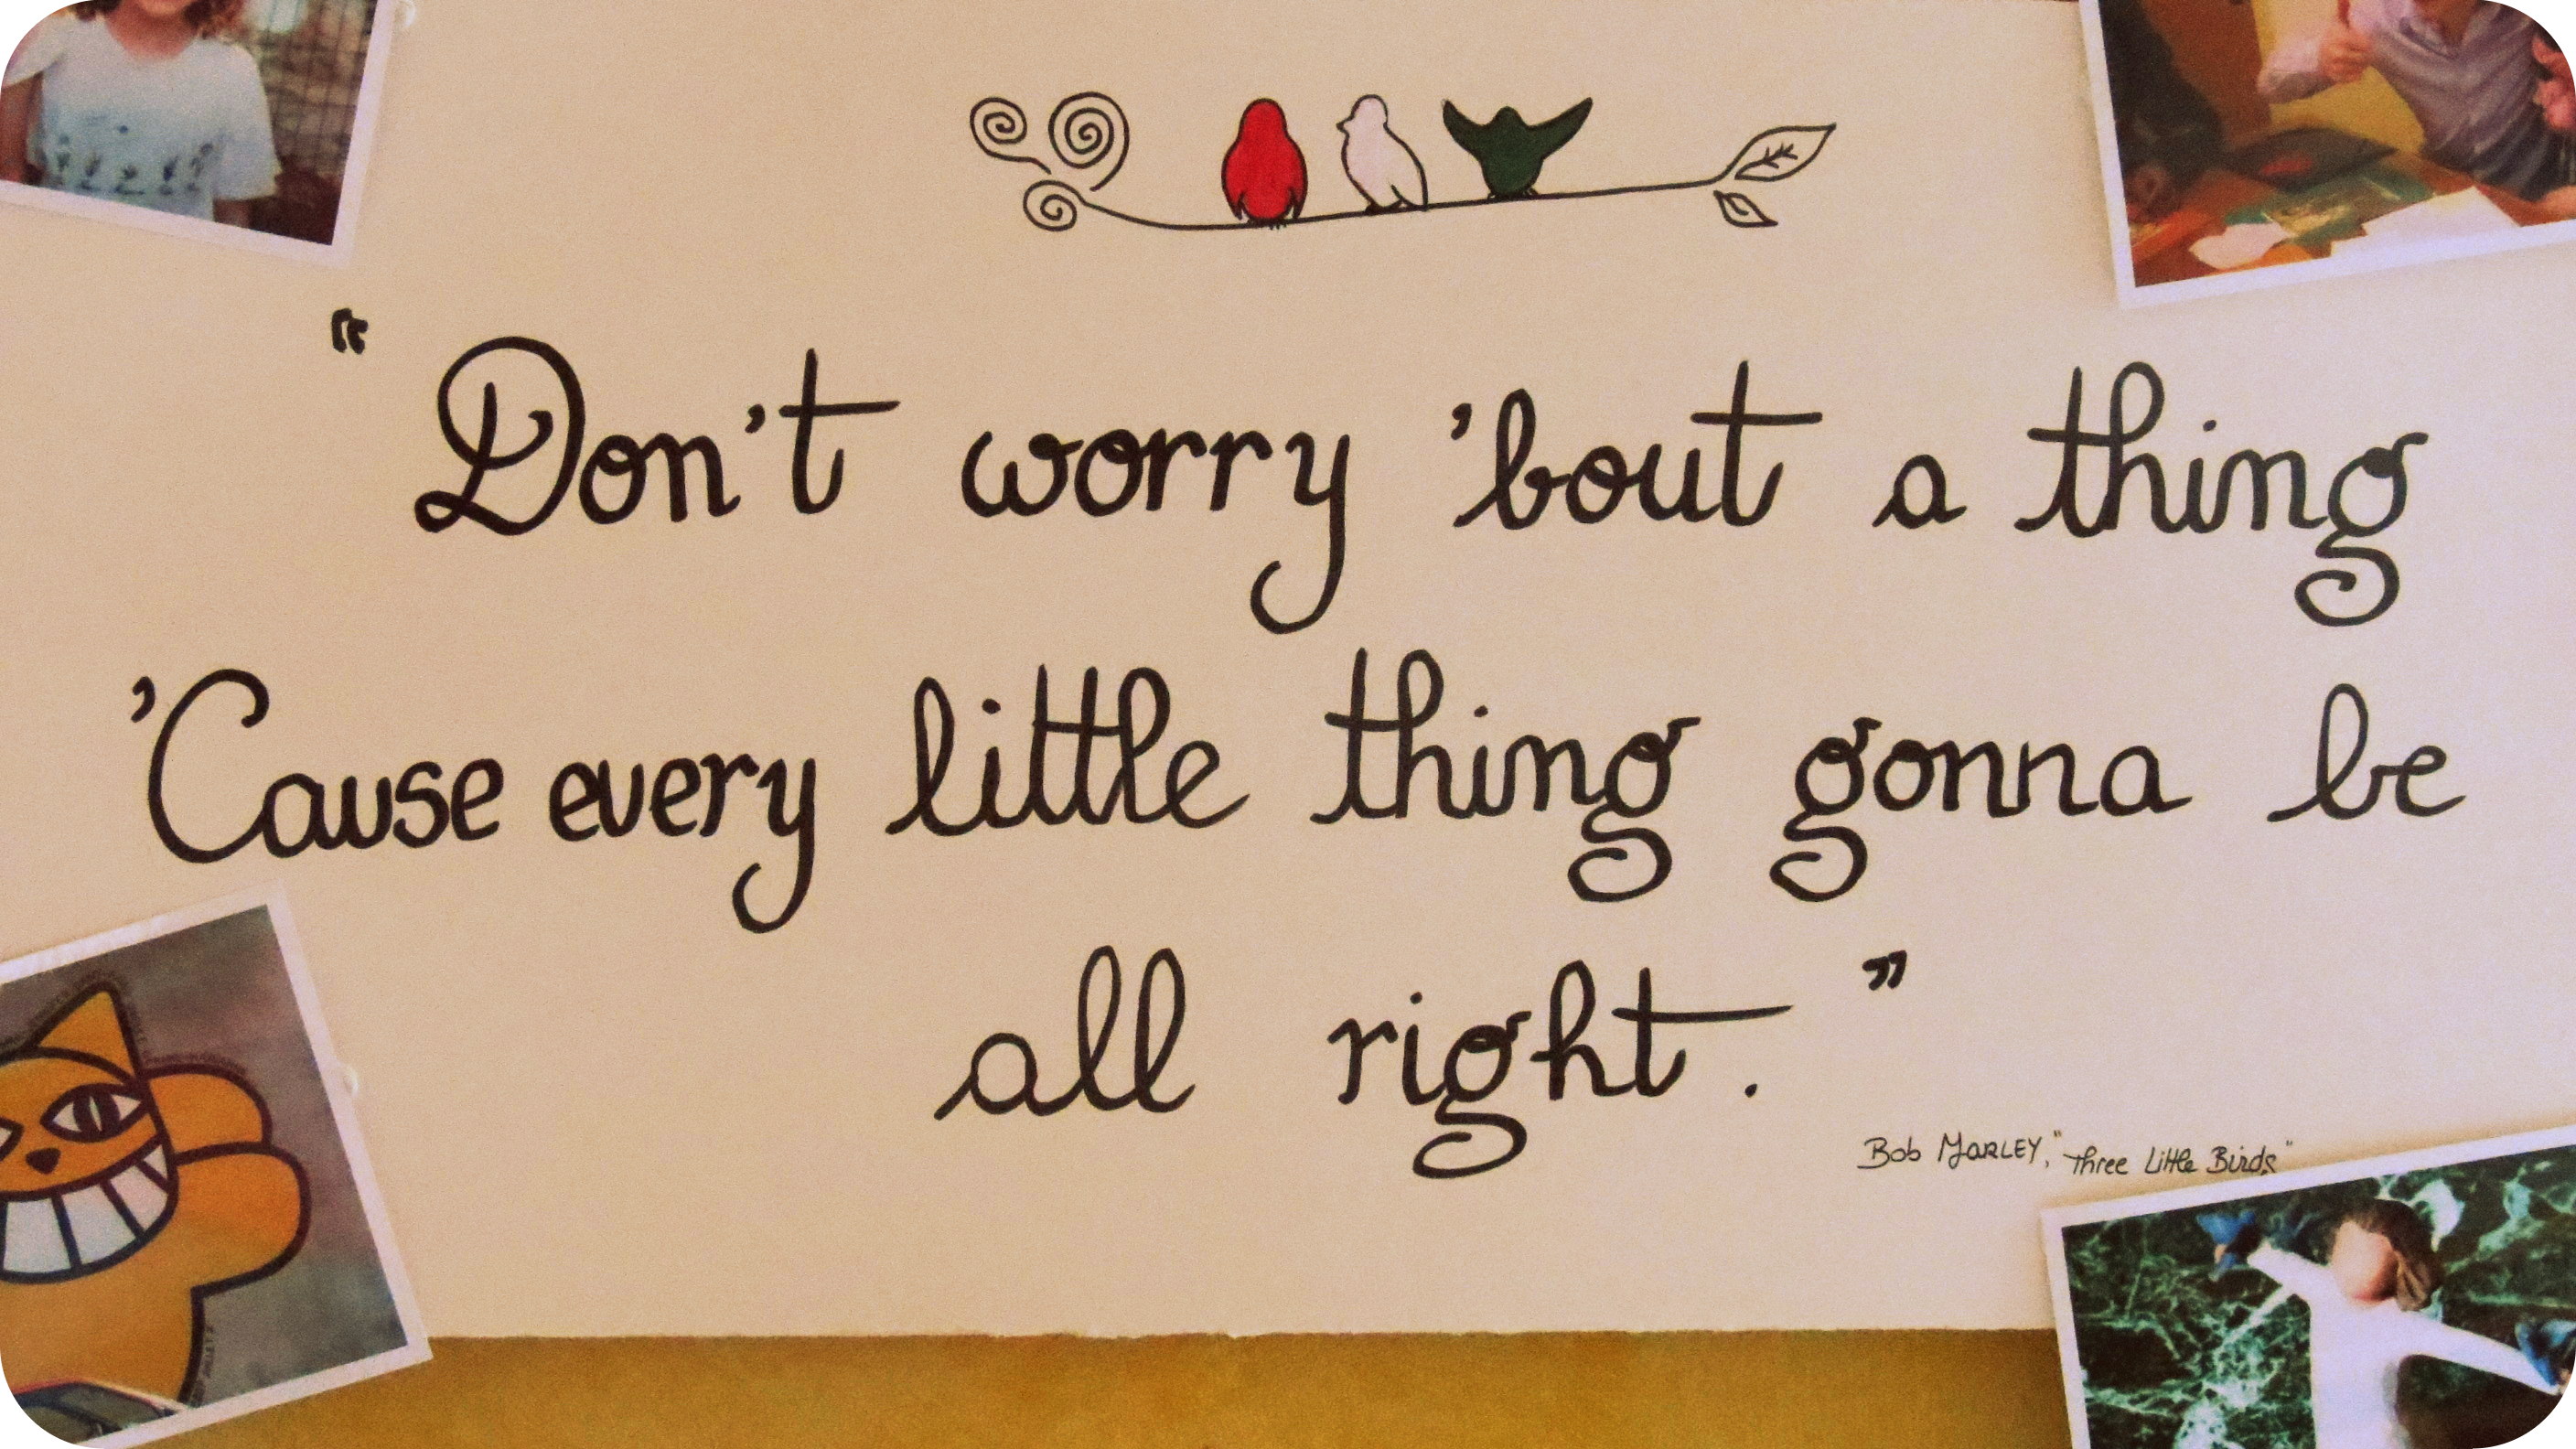 “Don't worry 'bout a thing
'Cause every little thing gonna be
all right.”
Bob MARLEY, "Three Little Birds"